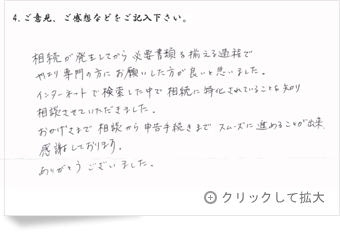 4.ご意見、ご感想などをご記入下さい。
相続が発生してから必要書類を揃える過程で
やはり専門の方にお願いした方が良いと思いました。
インターネットで検索した中で相続に特化されていることを知り
相談させていただきました。
おかげさまで相談から申告手続きまでスムーズに進めることが出来、
感謝しております。
ありがとうございました。
クリックして拡大